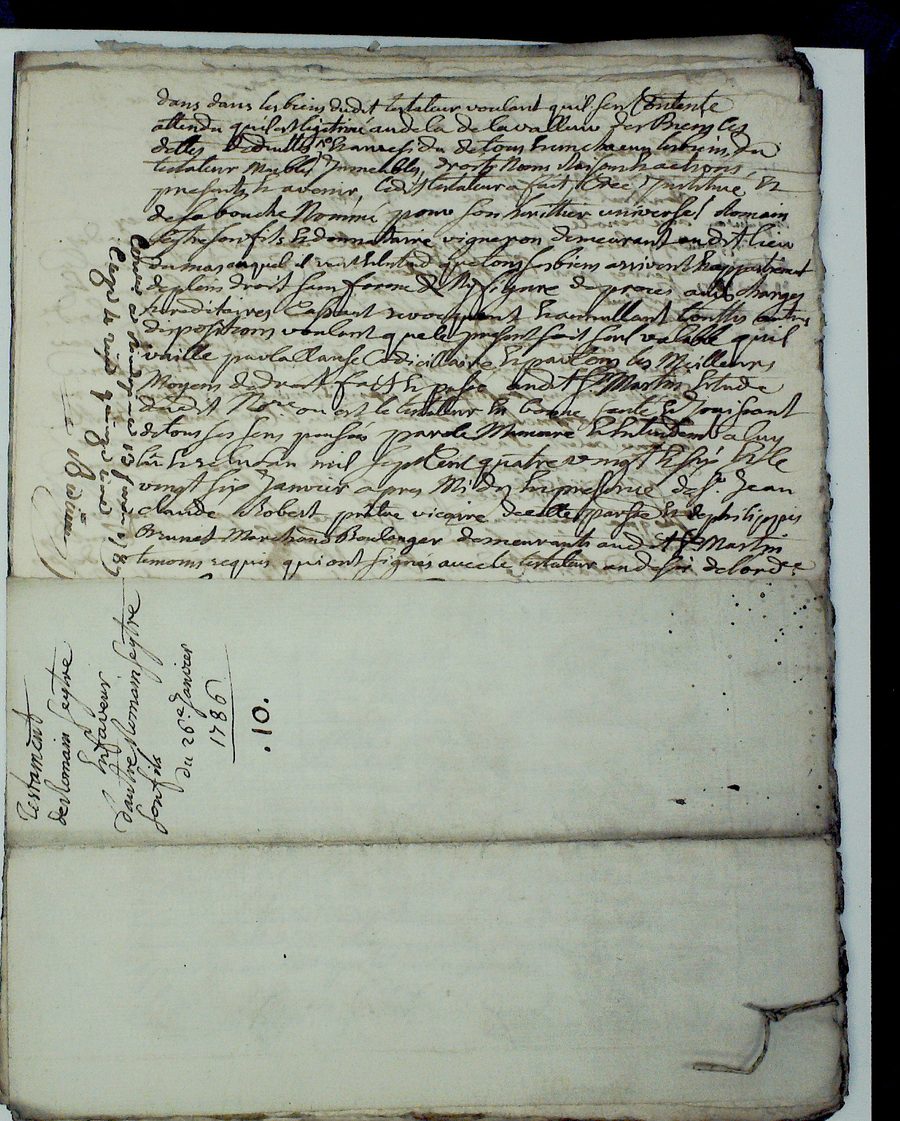 dans dans les biens dudit testateur voulant quil sen Contente
attendu quil est legitimé audela de la valleur des Biens Les
dettes deduittes Et au residu de tous Et un chacun les biens du
testateur Meubles, Immeubles, droits Noms Raisons Et actions,
presents Et avenir, Ledit testateur a fait, Créé, Institué, Et
de sa bouche Nommé pour son heritier universel Romain
Seytre son fils Et donnataire vigneron demeurant audit lieu
du mas auquel il veut Et entend que tous ses biens arrivent Et appartienent
de plein droit sans forme Ny figure de procès aux charges
hereditaires Cassant revocquant Et annullant touttes autres
dispositions voulant que le present soit seul valable quil
vaille par la Clause Codicillaire Et par tous les Meilleurs
Moyens de droit fait Et passé audit St Martin Etude
dudit Nore ou est le testateur En bonne santé Et Jouissant
de tous ses sens pensées parole Memoire Et Entendement a luy
lû Et relu Lan mil sept Cent quatre vingt Et six Et le
vingt six Janvier apres Midy En presence de Sr. Jean
Claude Robert prêtre vicaire de cette parsse Et de philippes
Brunet Marchand Boulanger demeurants audit St Martin
temoins requis qui ont signés avec le testateur au desir de lordce
Testament
de Romain Seytre
En faveur
dautre Romain Seytre
son fils
du 26e Janvier
1786
.10.